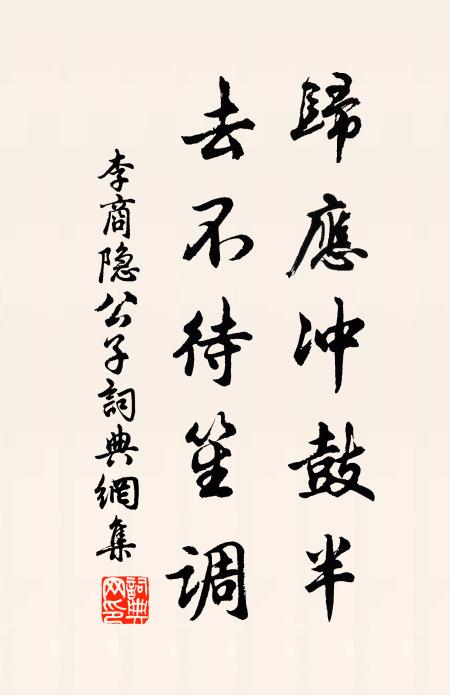 歸應冲鼓半
去不待笙调
李商隐公子詞典網集
詞典
网印